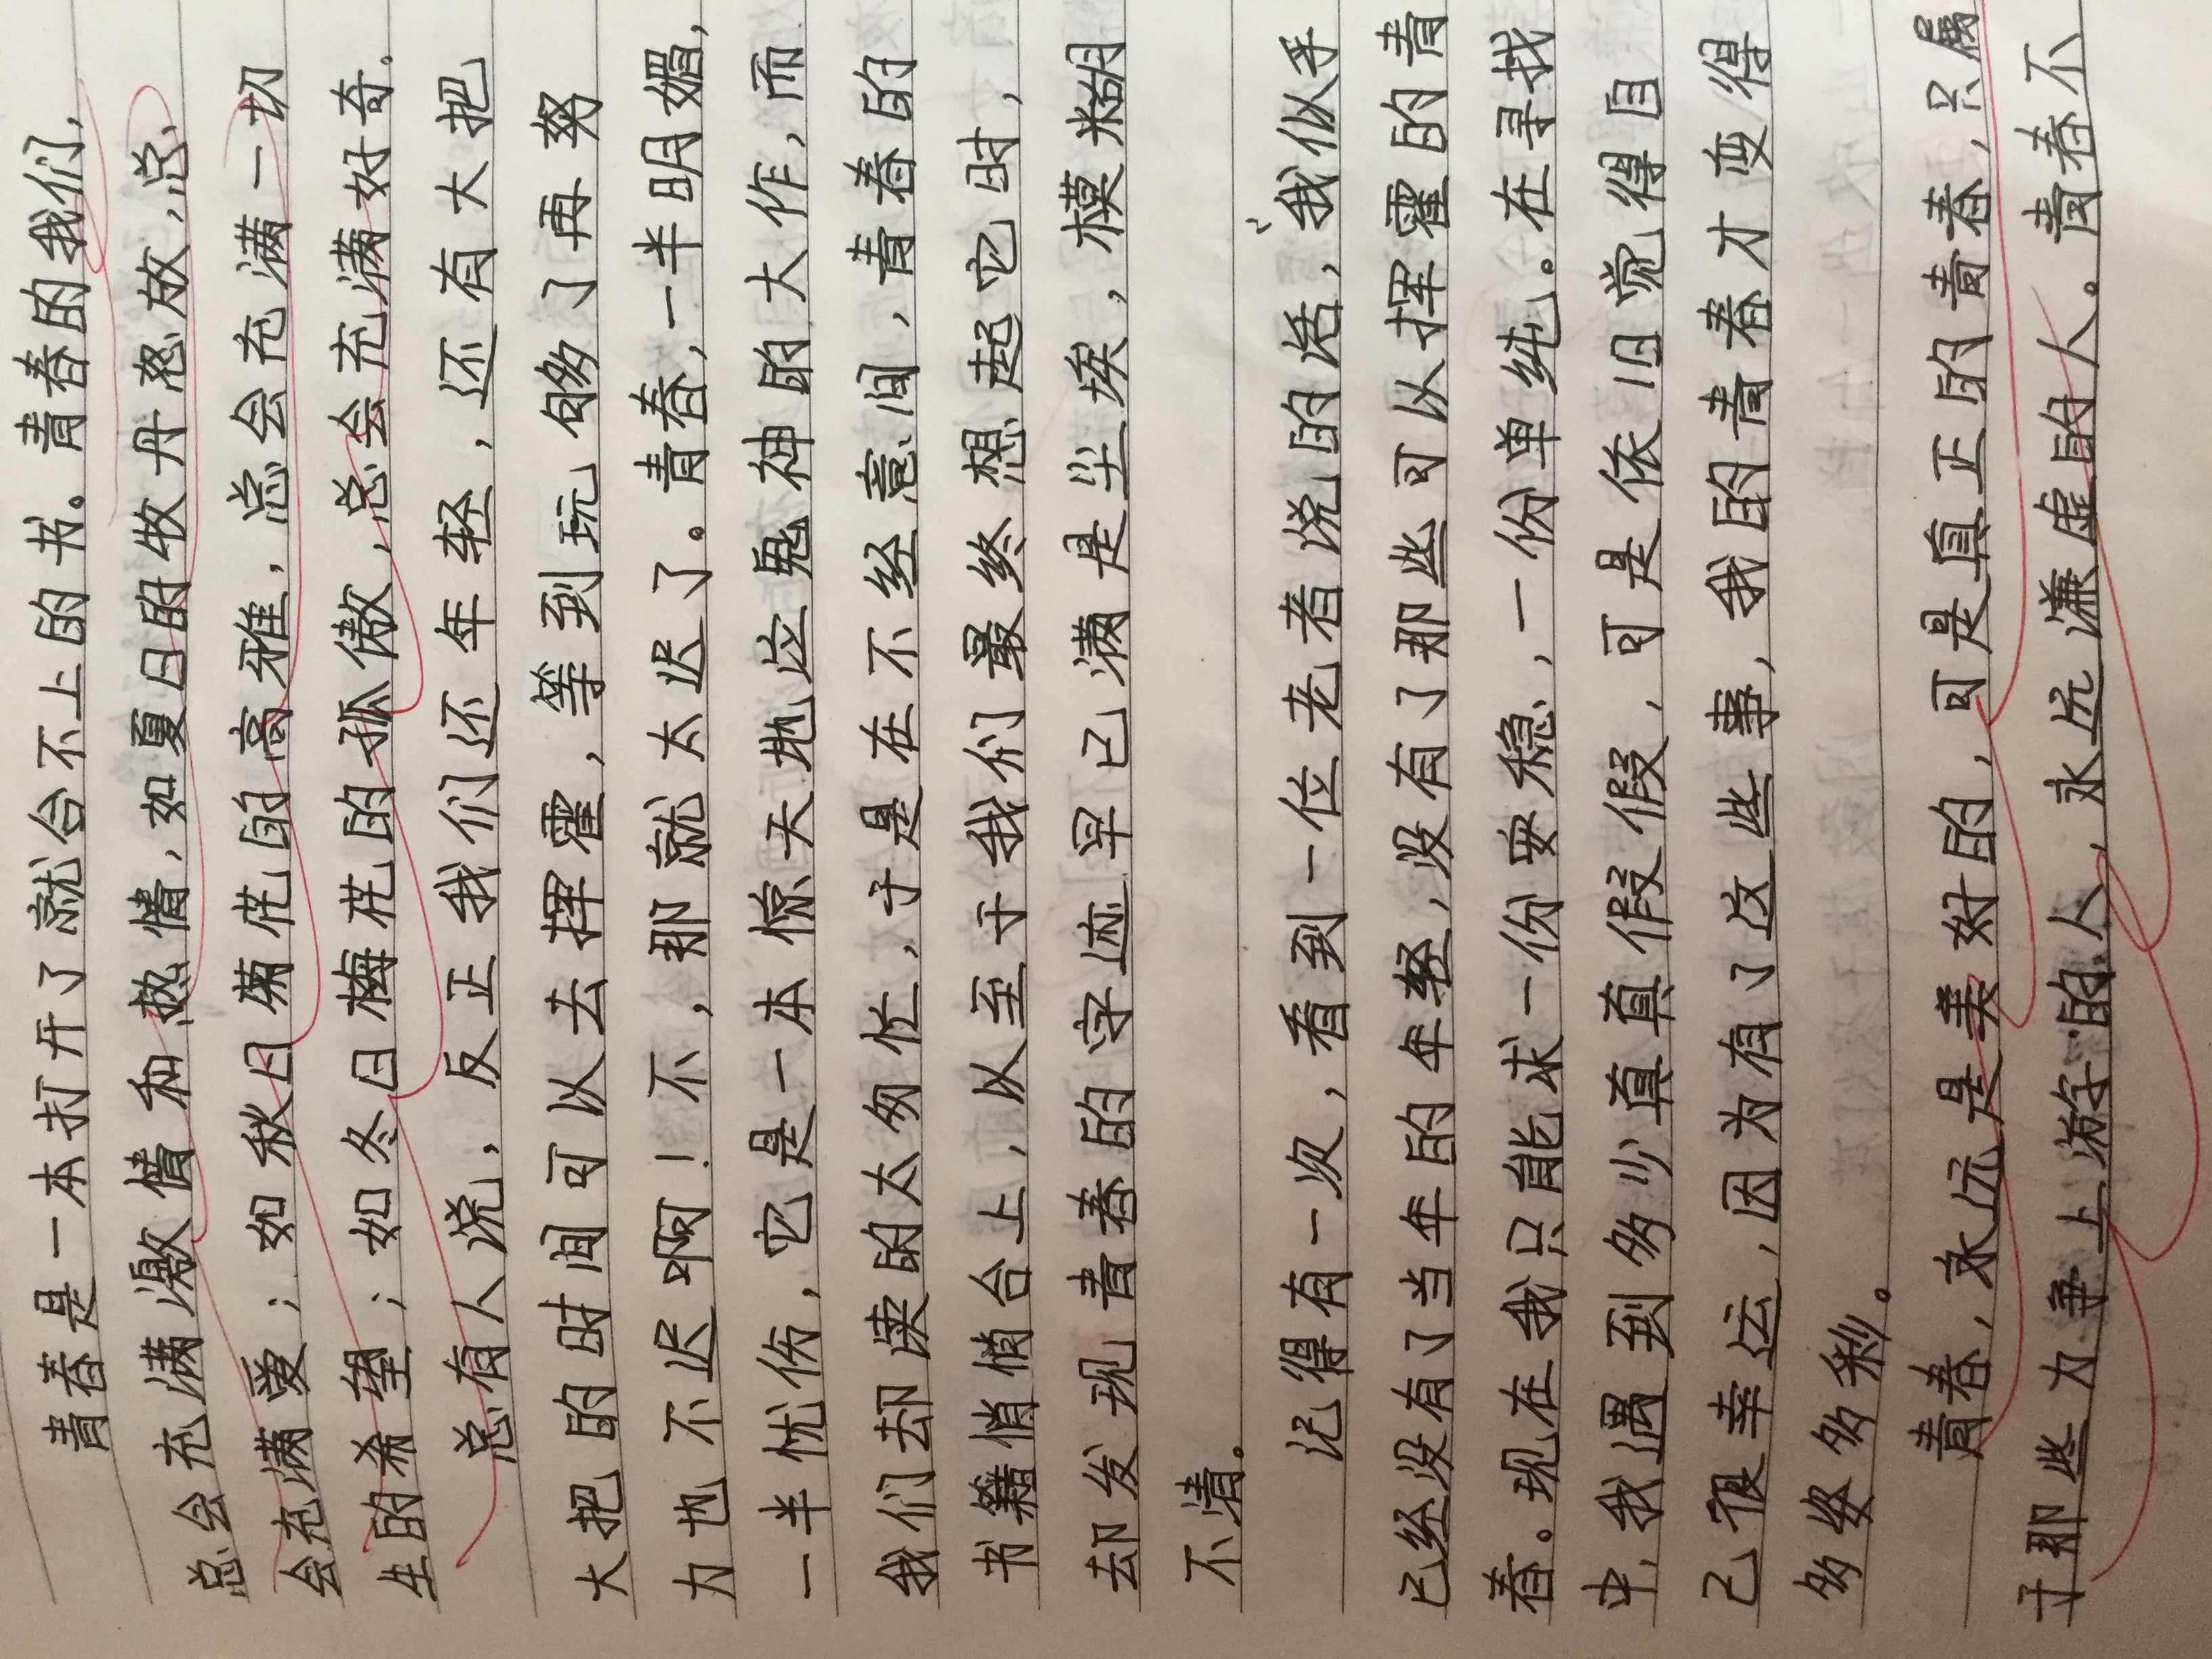 青春是一本打开了就合不上的书。青春的我们,
总会充满激情和热情,如夏日的牡丹怒放,总
会充满爱;如秋日菊花的高雅,总会充满一切
生的希望;如冬日梅花的孤傲,总会充满好奇.
总有人说,反正我们还年轻,还有大把
大把的时间可以去挥霍,等到玩够了再努
力也不迟啊!不,那就太迟了。青春,一半明媚,
一半忧伤,它是一本惊天地泣鬼神的大作,而
我们却读的太匆忙,于是在不经意间,青春的
书籍悄悄合上,以至于我们最终想起它时,
却发现青春的字迹早已满是尘埃,模糊
不清。
记得有一次,看到一位老者说的话,“我似乎
已经没有了当年的年轻,没有了那些可以挥霍的青
春。现在我只能求一份安稳,一份单纯。在寻找
中,我遇到多少真真假假,可是依旧觉得自
己很幸运,因为有了这些事,我的青春才变得
多姿多彩。
青春,永远是美好的,可是真正的青春,只属
于那些力争上游的人,永远谦虚的人。青春不